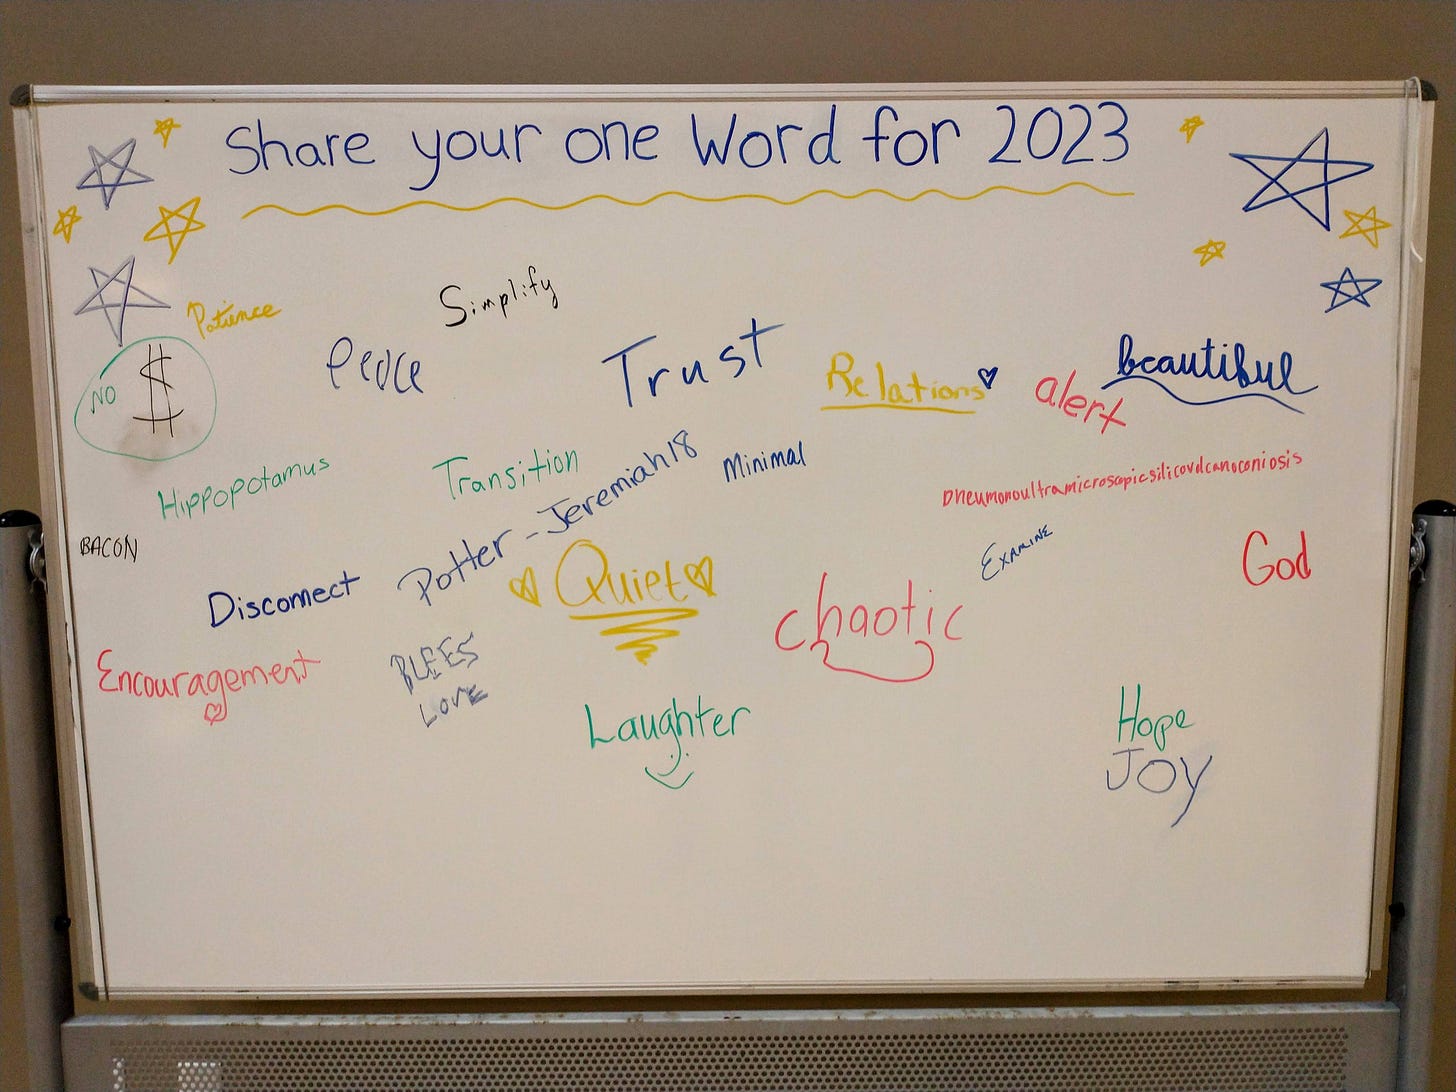 Share your one Word for 2023
Patience
Simplify
Peace
Trust
Relations
alert
beautiful
NO $
Hippopotamus
Transition
Minimal
pneumonoultramicroscopicsilicovolcanoconiosis
BACON
Disconnect
Potter - Jeremiah 18
Quiet
chaotic
EXAMINE
God
Encouragement
BLEES
LOVE
Laughter
Hope
JOY